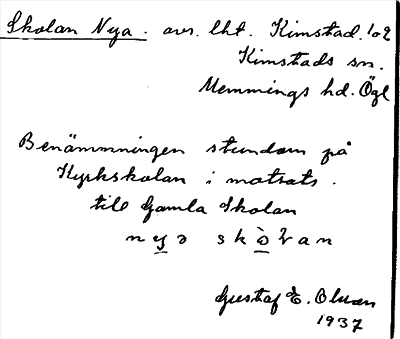 Skolan Nya. avs. lht. Kimstad 1o2
Kimstads sn.
Memmings hd. Ögl
Benämningen stundom på
Kyrkskolan i motsats
till Gamla Skolan
nyə skòlan
Gustaf E. Olsson
1937